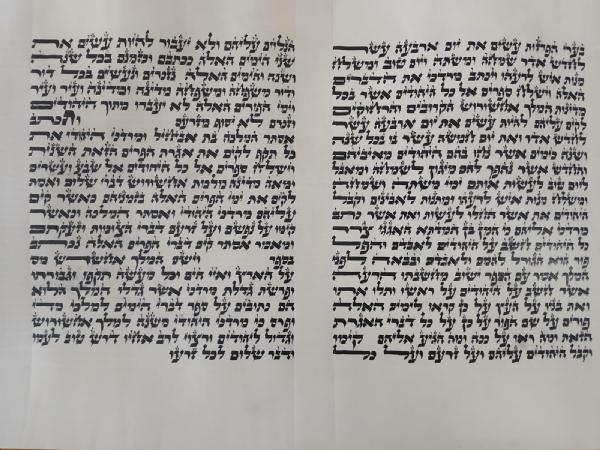 בערי הפרזות עשים את יום ארבעה עשר
לחדש אדר שמחה ומשתה ויום טוב ומשלוח
מנות איש לרעהו ויכתב מרדכי את הדברים
האלה וישלח ספרים אל כל היהודים אשר בכל
מדינות המלך אחשורוש הקרובים והרחוקים
לקים עליהם להיות עשים את יום ארבעה עשר
לחדש אדר ואת יום חמשה עשר בו בכל שנה
ושנה כימים אשר נחו בהם היהודים מאיביהם
והחדש אשר נהפך להם מיגון לשמחה ומאבל
ליום טוב לעשות אותם ימי משתה ושמחה
ומשלח מנות איש לרעהו ומתנות לאבינים וקבל
היהודים את אשר החלו לעשות ואת אשר כתב
מרדכי אליהם כי המן בן המדתא האגגי צרר
כל היהודים חשב על היהודים לאבדם והפל
פור הוא הגורל להמם ולאבדם ובבאה לפני
המלך אמר עם הספר ישוב מחשבתו הרעה
אשר חשב על היהודים על ראשו ותלו אתו
ואת בניו על העץ על כן קראו לימים האלה
פורים על שם הפור על כן על כל דברי האגרת
הזאת ומה ראו על ככה ומה הגיע אליהם קימו
וקבל היהודים עליהם ועל זרעם ועל כל
הנלוים עליהם ולא יעבור להיות עשים את
שני הימים האלה ככתבם וכזמנם בכל שנה
ושנה והימים האלה נזכרים ונעשים בכל דור
ודור משפחה ומשפחה מדינה ומדינה ועיר ועיר
וימי הפורים האלה לא יעברו מתוך היהודים
וזכרם לא יסוף מזרעם ותכתב
אסתר המלכה בת אביחיל ומרדכי היהודי את
כל תקף לקים את אגרת הפרים הזאת השנית
וישלח ספרים אל כל היהודים אל שבע ועשרים
ומאה מדינה מלכות אחשורוש דברי שלום ואמת
לקים את ימי הפרים האלה בזמניהם כאשר קים
עליהם מרדכי היהודי ואסתר המלכה וכאשר
קימו על נפשם ועל זרעם דברי הצומות וזעקתם
ומאמר אסתר קים דברי הפרים האלה ונכתב
בספר וישם המלך אחשרש מס
על הארץ ואיי הים וכל מעשה תקפו וגבורתו
ופרשת גדלת מרדכי אשר גדלו המלך הלוא
הם כתובים על ספר דברי הימים למלכי מדי
ופרס כי מרדכי היהודי משנה למלך אחשורוש
וגדול ליהודים ורצוי לרב אחיו דרש טוב לעמו
ודבר שלום לכל זרעו